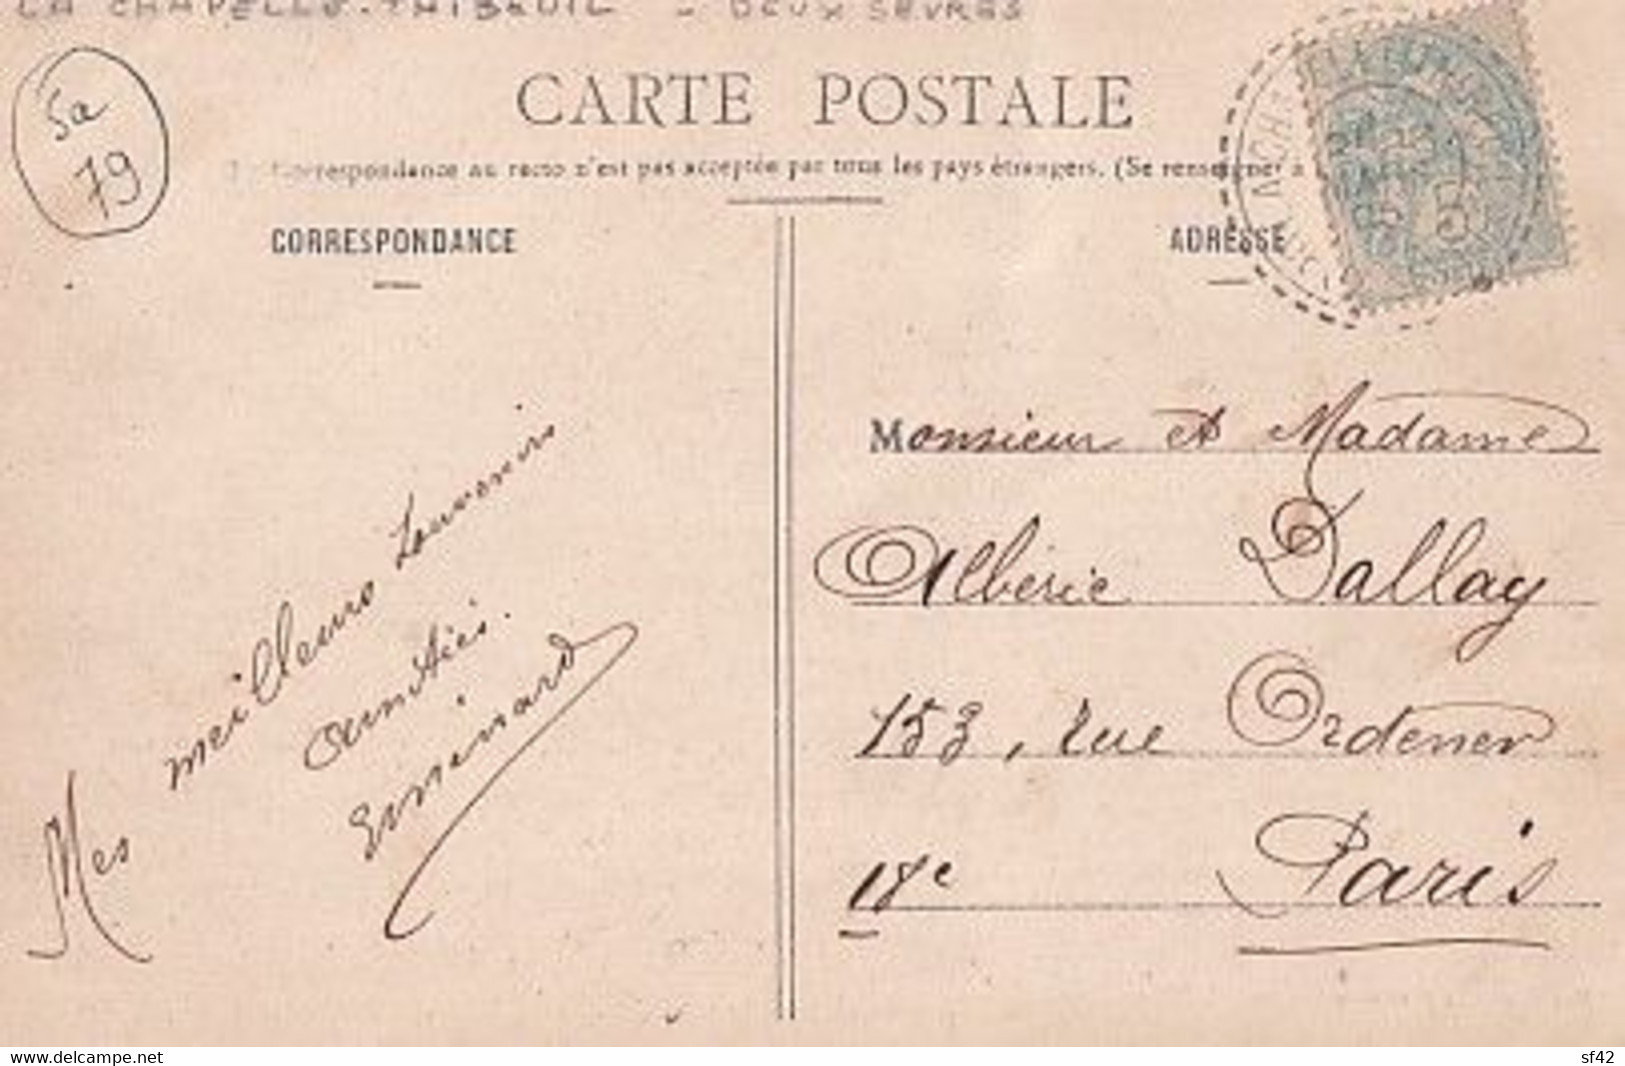 LA CHAPELLE-THIBEUIL - DEUX SEVRES
5a
79
CARTE POSTALE
Correspondance au recto n'est pas acceptée par tous les pays étrangers. (Se renseigner à
CORRESPONDANCE
ADRESSE
Monsieur et Madame
Albéric Dallay
153, rue Ordener
18e Paris
Mes meilleurs souvenirs
amitiés.
www.delcampe.net
sf42